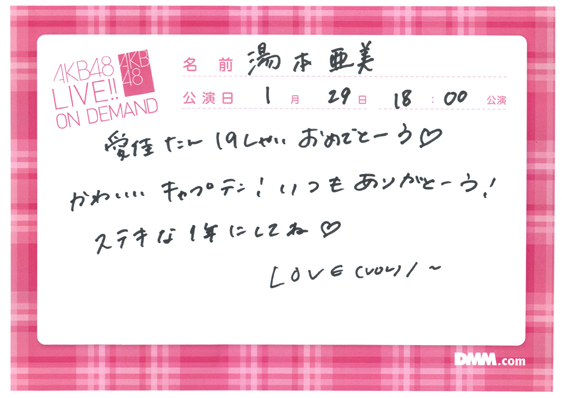 AKB48
LIVE!!
ON DEMAND
AKB
48
名 前 湯本亜美
公演日 1 月 29 日 18 : 00 公演
愛佳たん 19しゃい おめでとーう♡
かわいいい キャプテン! いつも ありがとーう!
ステキな 1年にしてね ♡
LOVE
DMM.com